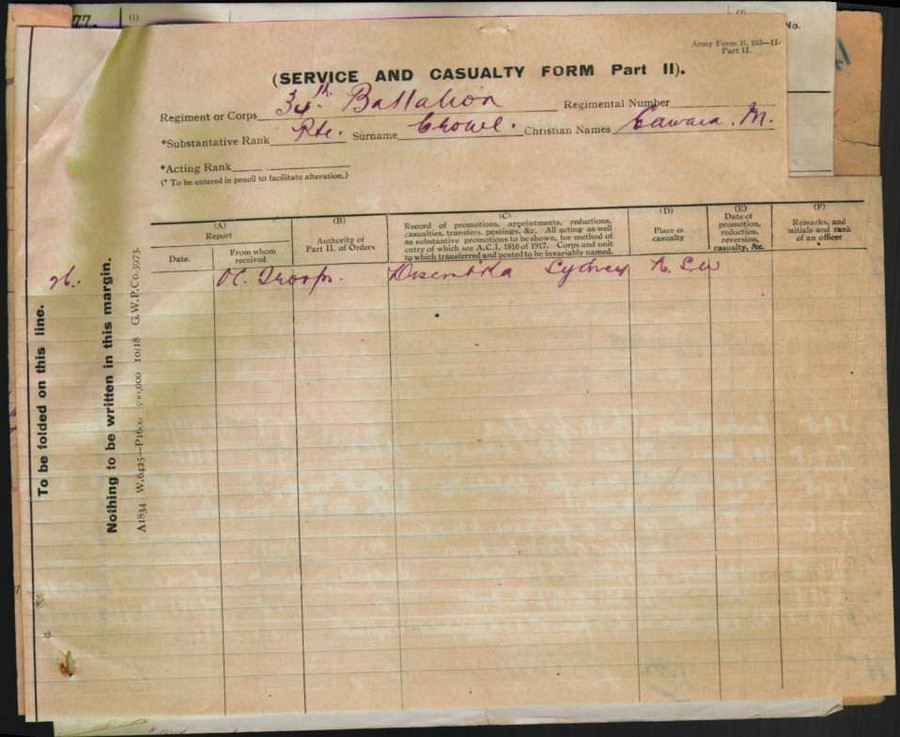 77.
(1)
No.
Army Form B. 103—II.
Part II.
(SERVICE AND CASUALTY FORM Part II).
Regiment or Corps 34th Battalion Regimental Number
*Substantative Rank Pte. Surname Crowe. Christian Names Edward. M.
*Acting Rank
(* To be entered in pencil to facilitate alteration.)
(A)
Report
Date.
From whom received
(B)
Authority of Part II. of Orders
(C)
Record of promotions, appointments, reductions,
casualties, transfers, postings, &c. All acting as well
as substantive promotions to be shown, for method of
entry of which see A.C.I. 1816 of 1917. Corps and unit
to which transferred and posted to be invariably named.
(D)
Place of casualty
(E)
Date of promotion, reduction, reversion, casualty, &c.
(F)
Remarks, and initials and rank of an officer
OC. Troops. Disembkd Sydney
To be folded on this line.
Nothing to be written in this margin.
A1834 W.6425—P1600 500,000 10/18 G.W.P.Co.3973.